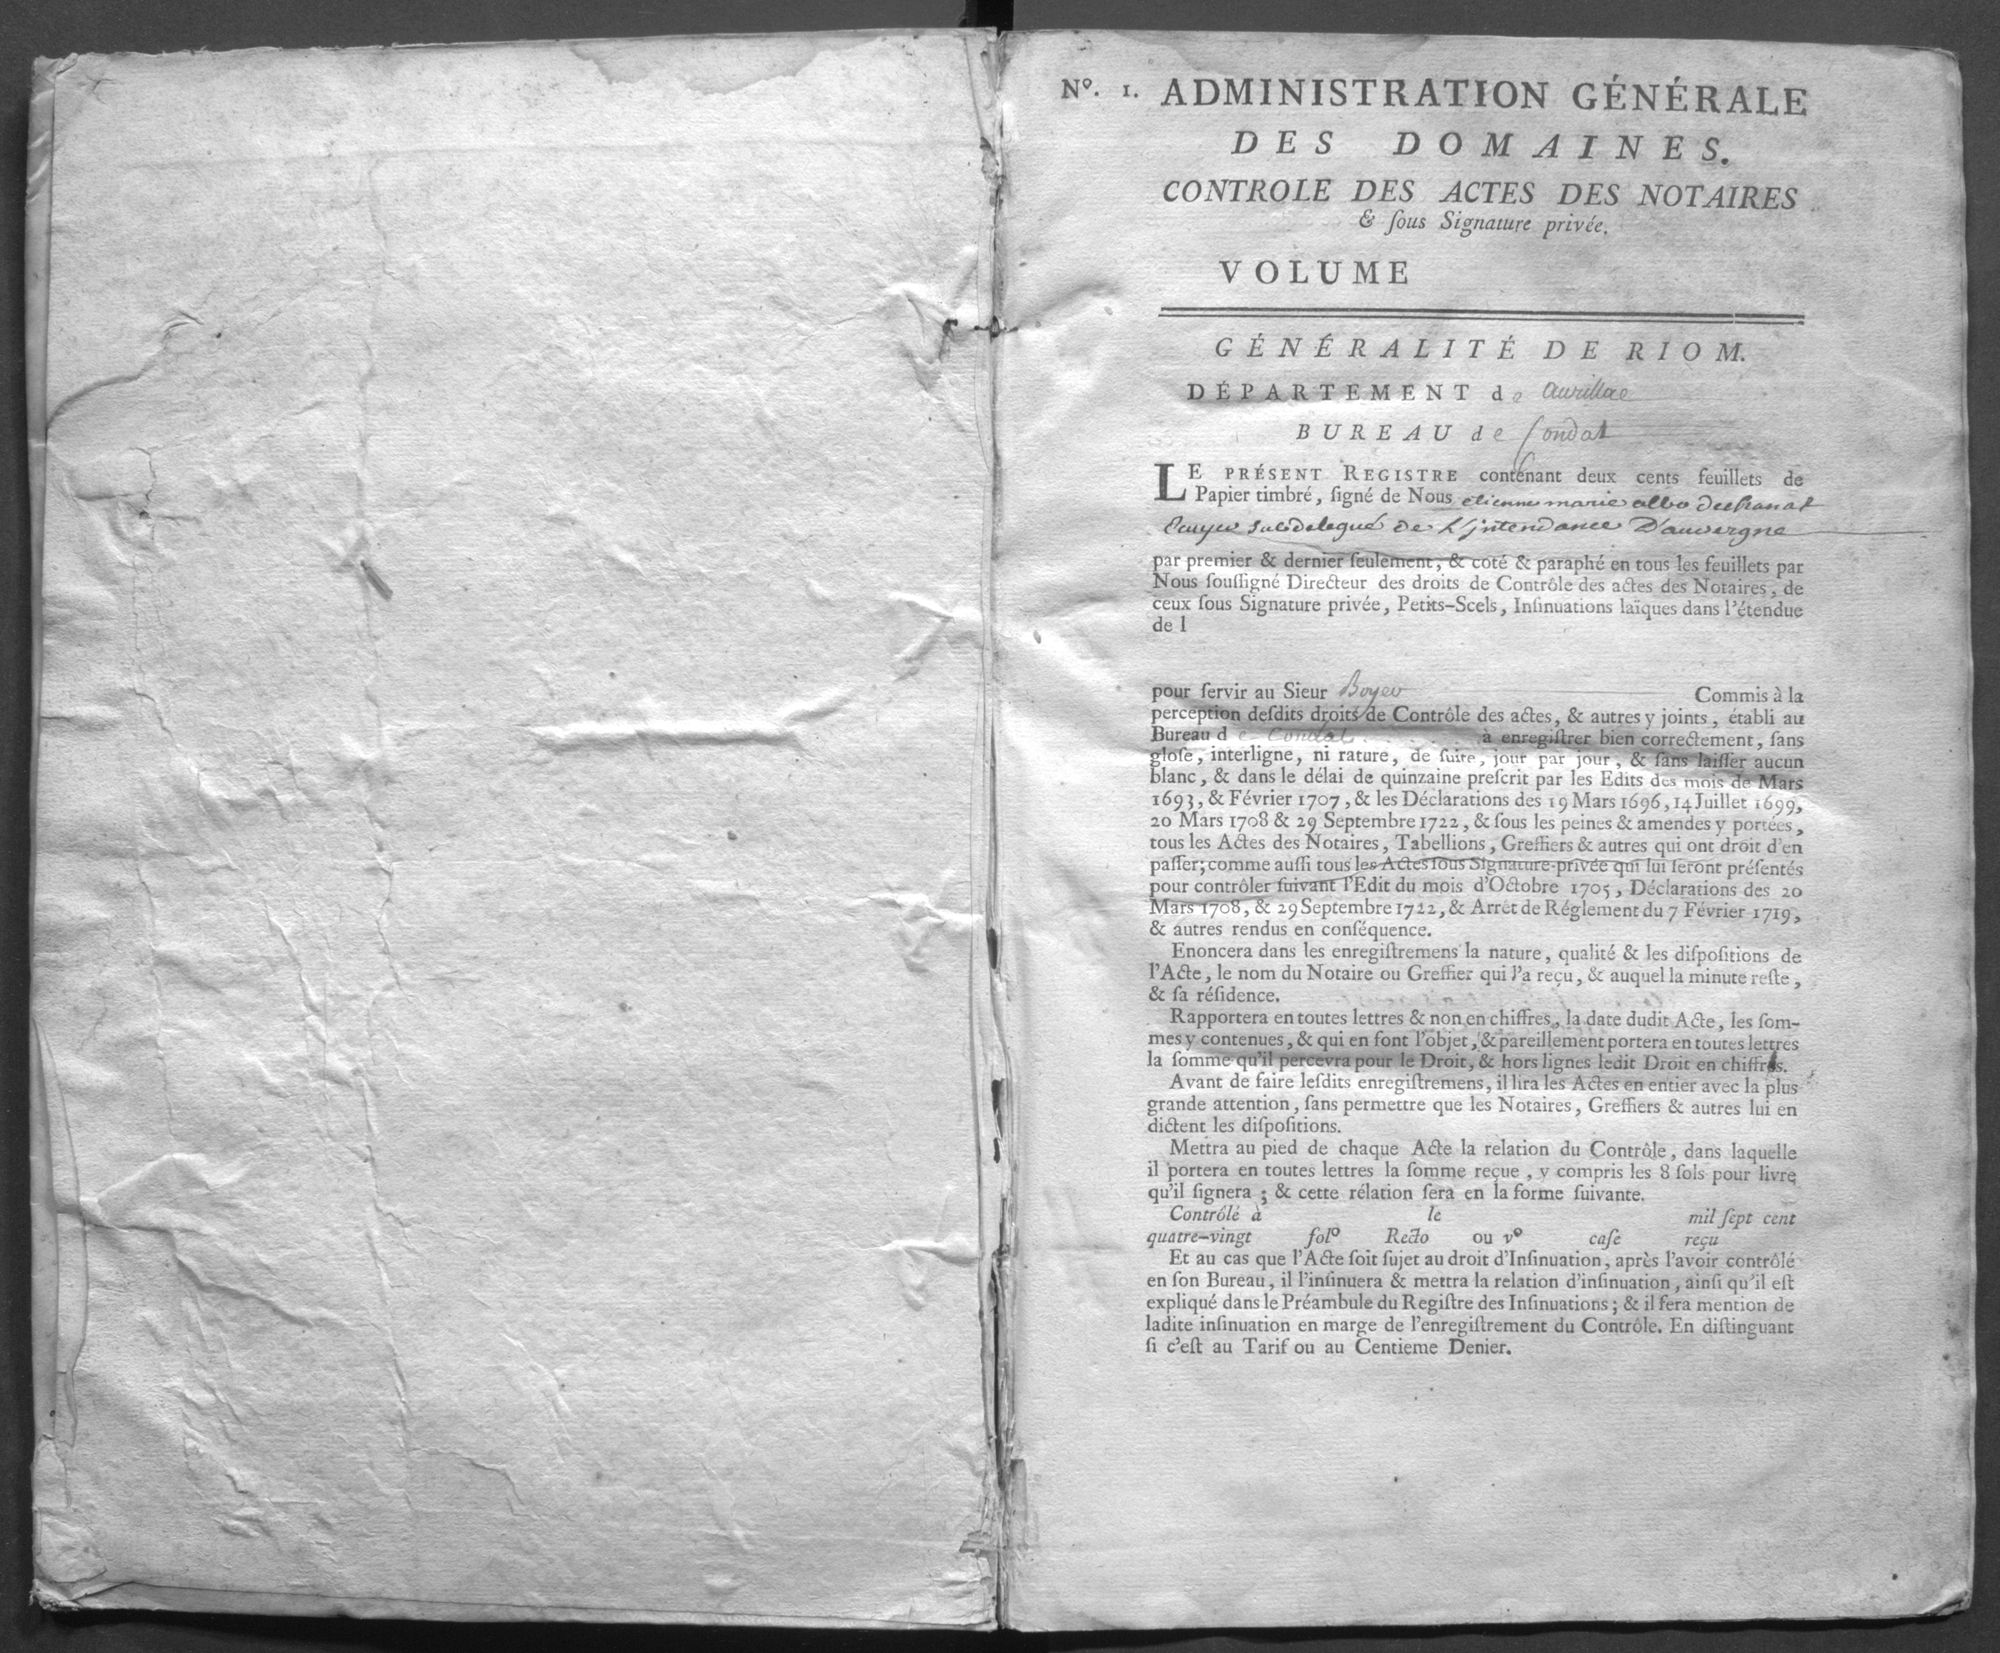 Nº. 1. ADMINISTRATION GÉNÉRALE
DES DOMAINES.
CONTROLE DES ACTES DES NOTAIRES
& ſous Signature privée.
VOLUME
GÉNÉRALITÉ DE RIOM.
DÉPARTEMENT de aurillac
BUREAU de Condat
LE PRÉSENT REGISTRE contenant deux cents feuillets de
Papier timbré, ſigné de Nous etienne marie albo
Ecuyer subdelegué de L'jntendance D'auvergne
par premier & dernier ſeulement, & coté & paraphé en tous les feuillets par
Nous ſouſſigné Directeur des droits de Contrôle des actes des Notaires, de
ceux ſous Signature privée, Petits-Scels, Inſinuations laïques dans l'étendue
de l
pour ſervir au Sieur Boyer Commis à la
perception deſdits droits de Contrôle des actes, & autres y joints, établi au
Bureau de Condat à enregiſtrer bien correctement, ſans
gloſe, interligne, ni rature, de ſuite, jour par jour, & ſans laiſſer aucun
blanc, & dans le délai de quinzaine preſcrit par les Edits des mois de Mars
1693, & Février 1707, & les Déclarations des 19 Mars 1696, 14 Juillet 1699,
20 Mars 1708 & 29 Septembre 1722, & ſous les peines & amendes y portées,
tous les Actes des Notaires, Tabellions, Greffiers & autres qui ont droit d'en
paſſer; comme auſſi tous les Actes ſous Signature-privée qui lui ſeront préſentés
pour contrôler ſuivant l'Edit du mois d'Octobre 1705, Déclarations des 20
Mars 1708, & 29 Septembre 1722, & Arrêt de Réglement du 7 Février 1719,
& autres rendus en conſéquence.
Enoncera dans les enregiſtremens la nature, qualité & les diſpoſitions de
l'Acte, le nom du Notaire ou Greffier qui l'a reçu, & auquel la minute reſte,
& ſa réſidence.
Rapportera en toutes lettres & non en chiffres, la date dudit Acte, les ſom-
mes y contenues, & qui en font l'objet, & pareillement portera en toutes lettres
la ſomme qu'il percevra pour le Droit, & hors lignes ledit Droit en chiffres.
Avant de faire leſdits enregiſtremens, il lira les Actes en entier avec la plus
grande attention, ſans permettre que les Notaires, Greffiers & autres lui en
dictent les diſpoſitions.
Mettra au pied de chaque Acte la relation du Contrôle, dans laquelle
il portera en toutes lettres la ſomme reçue, y compris les 8 ſols pour livre
qu'il ſignera; & cette rélation ſera en la forme ſuivante.
Contrôlé à le mil ſept cent
quatre-vingt folº Recto ou vº caſe reçu
Et au cas que l'Acte ſoit ſujet au droit d'Inſinuation, après l'avoir contrôlé
en ſon Bureau, il l'inſinuera & mettra la relation d'inſinuation, ainſi qu'il eſt
expliqué dans le Préambule du Regiſtre des Inſinuations; & il fera mention de
ladite inſinuation en marge de l'enregiſtrement du Contrôle. En diſtinguant
ſi c'eſt au Tarif ou au Centieme Denier.